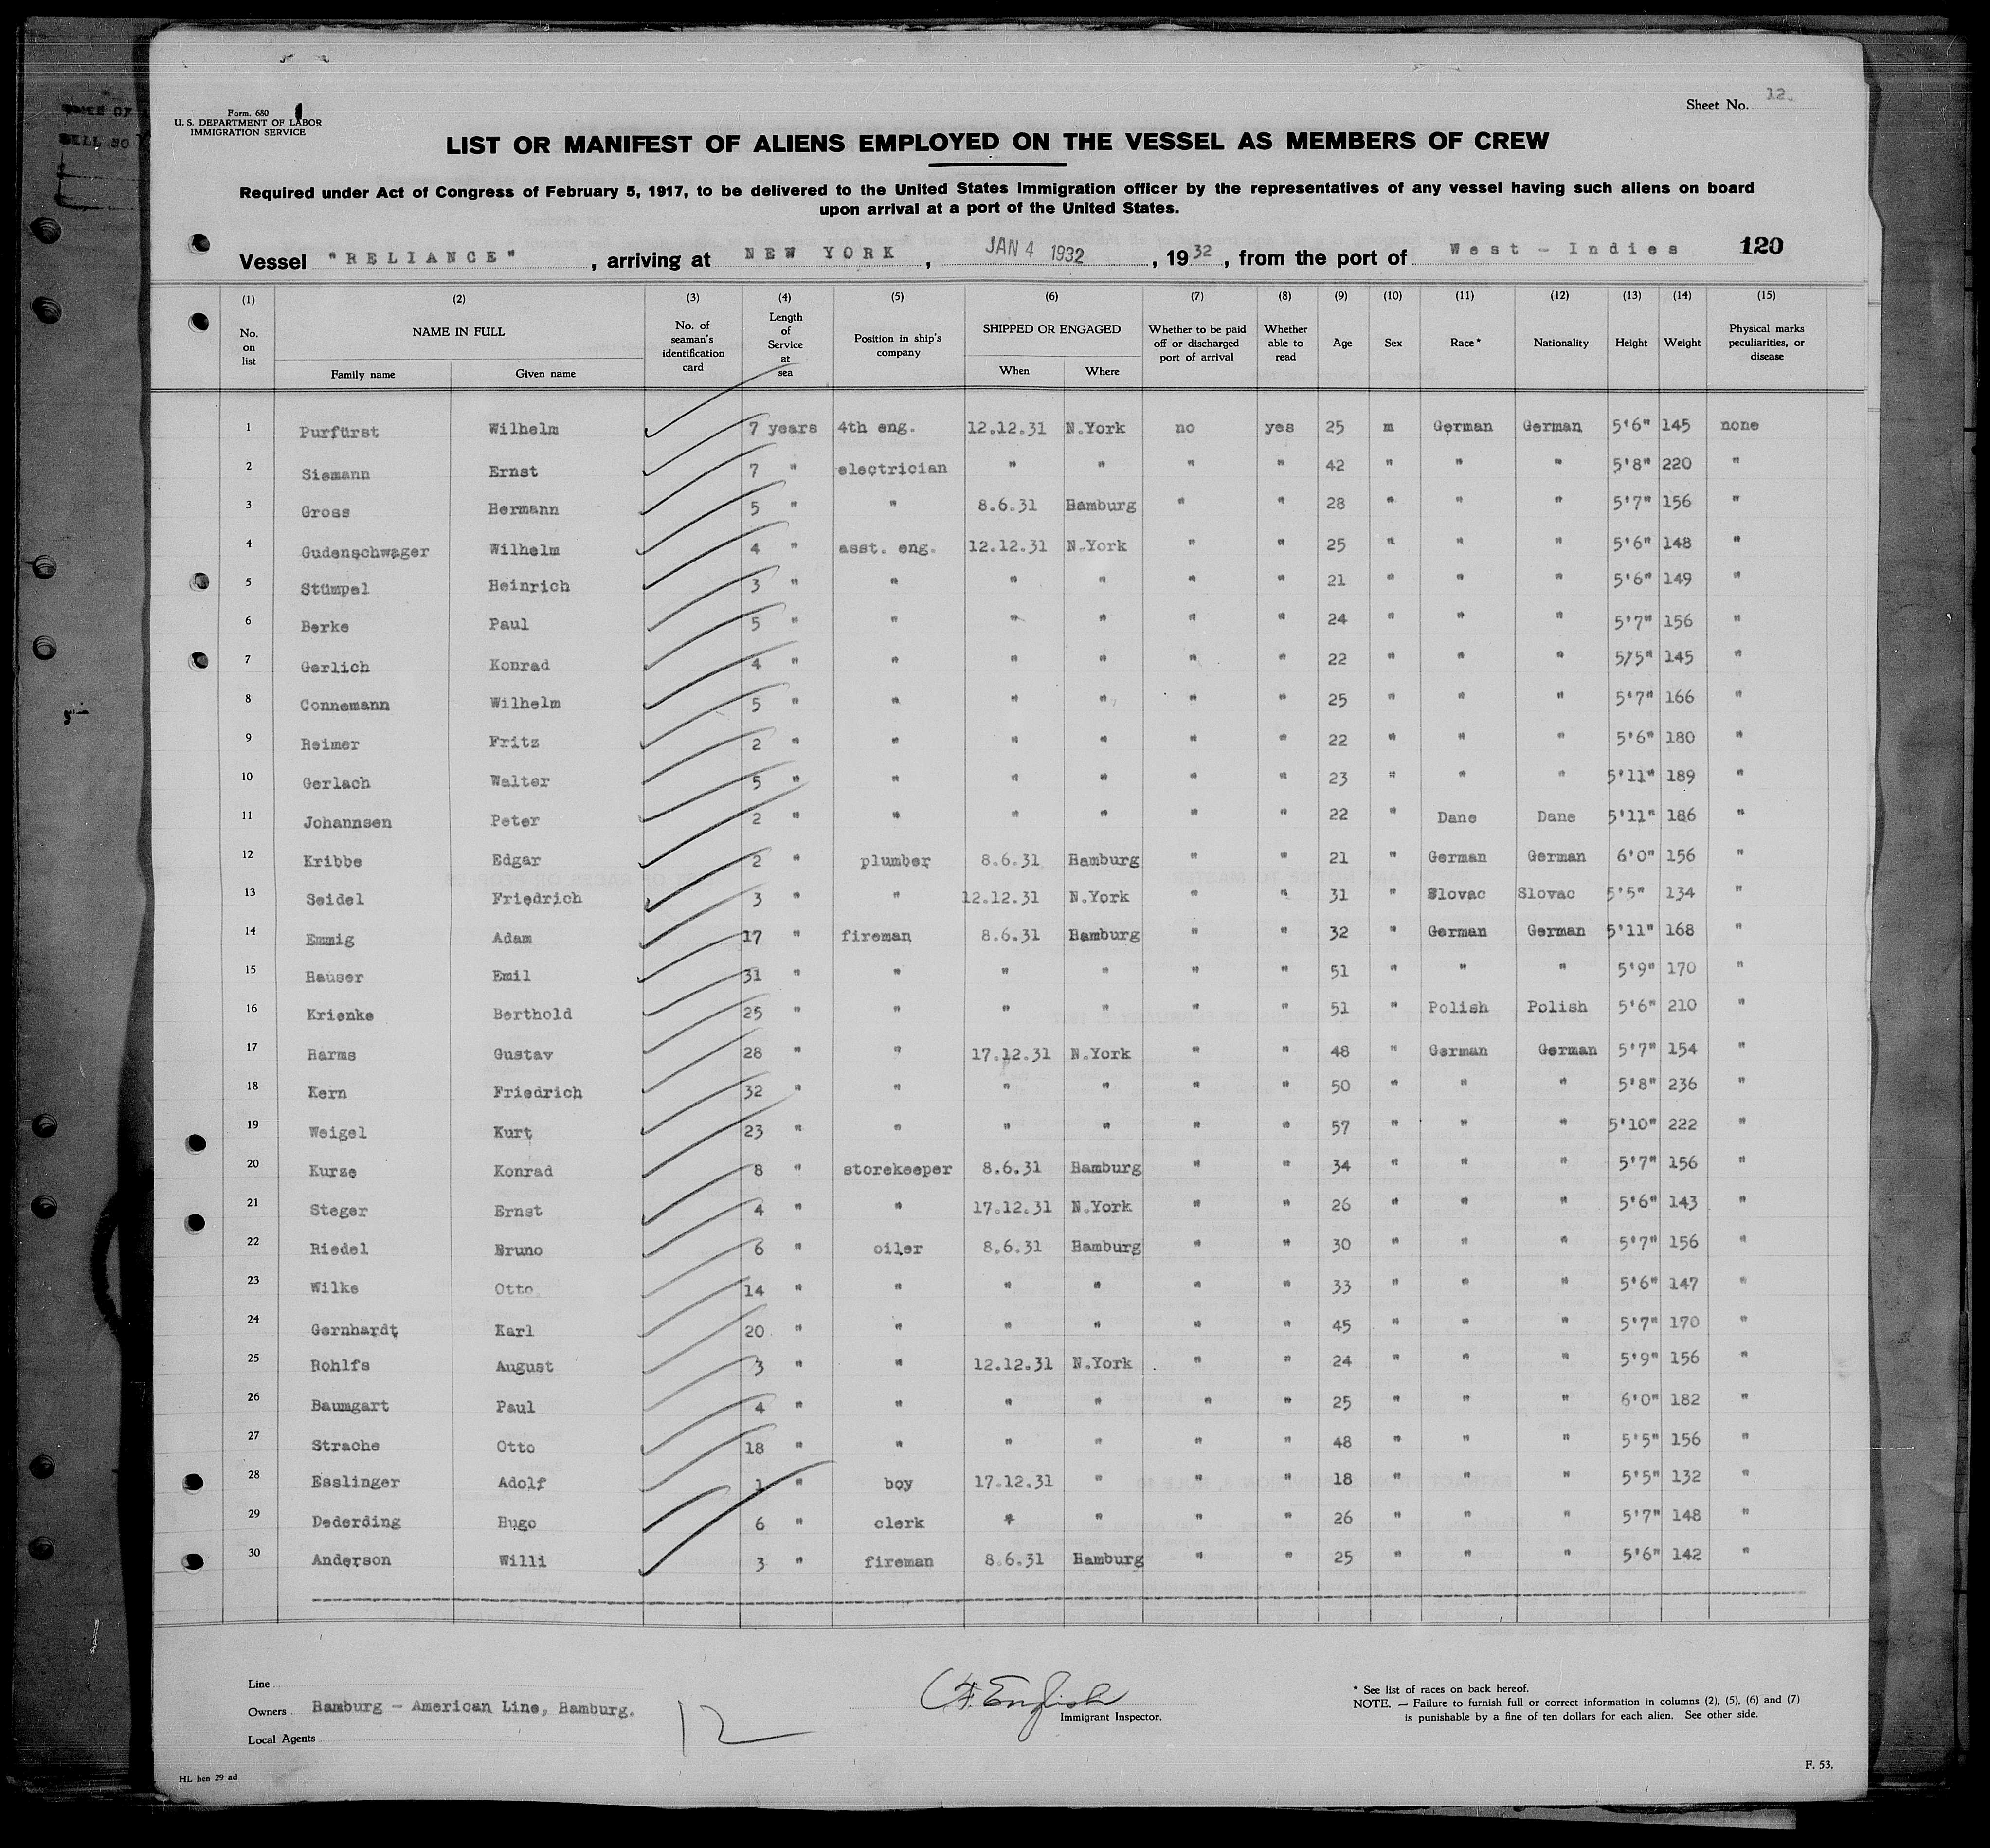 Form. 680
U. S. DEPARTMENT OF LABOR
IMMIGRATION SERVICE
Sheet No. 12.
LIST OR MANIFEST OF ALIENS EMPLOYED ON THE VESSEL AS MEMBERS OF CREW
Required under Act of Congress of February 5, 1917, to be delivered to the United States immigration officer by the representatives of any vessel having such aliens on board
upon arrival at a port of the United States.
Vessel "RELIANCE", arriving at NEW YORK, JAN 4 1932, 1932, from the port of West - Indies 120
(1) (2) (3) (4) (5) (6) (7) (8) (9) (10) (11) (12) (13) (14) (15)
No. on list NAME IN FULL Family name Given name No. of seaman's identification card Length of Service at sea Position in ship's company SHIPPED OR ENGAGED When Where Whether to be paid off or discharged port of arrival Whether able to read Age Sex Race* Nationality Height Weight Physical marks peculiarities, or disease
1 Purfürst Wilhelm 7 years 4th eng. 12.12.31 N.York no yes 25 m German German 5'6" 145 none
2 Siemann Ernst 7 " electrician " " " " 42 " " " 5'8" 220 "
3 Gross Hermann 5 " " 8.6.31 Hamburg " " 28 " " " 5'7" 156 "
4 Gudenschwager Wilhelm 4 " asst. eng. 12.12.31 N.York " " 25 " " " 5'6" 148 "
5 Stümpel Heinrich 3 " " " " " " 21 " " " 5'6" 149 "
6 Berke Paul 5 " " " " " " 24 " " " 5'7" 156 "
7 Gerlich Konrad 4 " " " " " " 22 " " " 5/5" 145 "
8 Connemann Wilhelm 5 " " " " " " 25 " " " 5'7" 166 "
9 Reimer Fritz 2 " " " " " " 22 " " " 5'6" 180 "
10 Gerlach Walter 5 " " " " " " 23 " " " 5'11" 189 "
11 Johannsen Peter 2 " " " " " " 22 " Dane Dane 5'11" 186 "
12 Kribbe Edgar 2 " plumber 8.6.31 Hamburg " " 21 " German German 6'0" 156 "
13 Seidel Friedrich 3 " " 12.12.31 N.York " " 31 " Slovac Slovac 5'5" 134 "
14 Emmig Adam 17 " fireman 8.6.31 Hamburg " " 32 " German German 5'11" 168 "
15 Hauser Emil 31 " " " " " " 51 " " " 5'9" 170 "
16 Krienke Berthold 25 " " " " " " 51 " Polish Polish 5'6" 210 "
17 Harms Gustav 28 " " 17.12.31 N.York " " 48 " German German 5'7" 154 "
18 Kern Friedrich 32 " " " " " " 50 " " " 5'8" 236 "
19 Weigel Kurt 23 " " " " " " 57 " " " 5'10" 222 "
20 Kurze Konrad 8 " storekeeper 8.6.31 Hamburg " " 34 " " " 5'7" 156 "
21 Steger Ernst 4 " " 17.12.31 N.York " " 26 " " " 5'6" 143 "
22 Riedel Bruno 6 " oiler 8.6.31 Hamburg " " 30 " " " 5'7" 156 "
23 Wilke Otto 14 " " " " " " 33 " " " 5'6" 147 "
24 Gernhardt Karl 20 " " " " " " 45 " " " 5'7" 170 "
25 Rohlfs August 3 " " 12.12.31 N.York " " 24 " " " 5'9" 156 "
26 Baumgart Paul 4 " " " " " " 25 " " " 6'0" 182 "
27 Strache Otto 18 " " " " " " 48 " " " 5'5" 156 "
28 Esslinger Adolf 1 " boy 17.12.31 " " " 18 " " " 5'5" 132 "
29 Dederding Hugo 6 " clerk " " " " 26 " " " 5'7" 148 "
30 Anderson Willi 3 " fireman 8.6.31 Hamburg " " 25 " " " 5'6" 142 "
Line
Owners Hamburg - American Line, Hamburg.
Local Agents
12
English
Immigrant Inspector.
* See list of races on back hereof.
NOTE. — Failure to furnish full or correct information in columns (2), (5), (6) and (7)
is punishable by a fine of ten dollars for each alien. See other side.
HL hen 29 ad
F. 53.